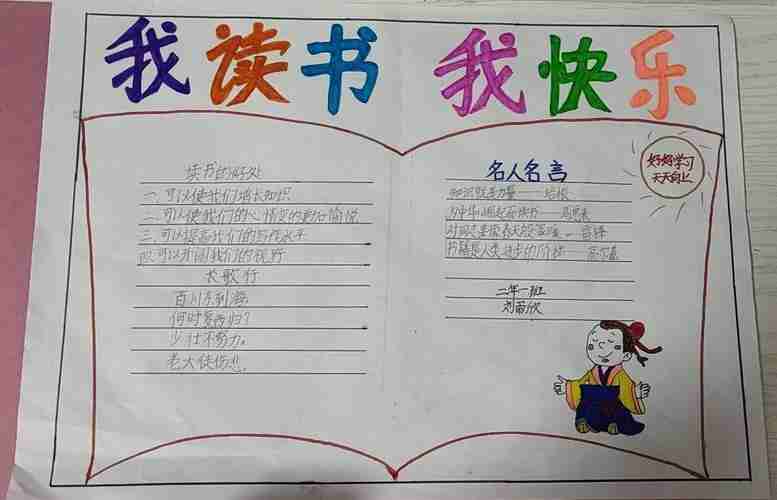 我读书 我快乐
读书的好处
一.可以使我们增长知识
二.可以使我们的心情变的更加愉悦
三.可以提高我们的写作水平
四.可以开阔我们的视野
长歌行
百川东到海,
何时复西归?
少壮不努力。
老大徒伤悲.
名人名言
知识就是力量——培根
为中华崛起而读书——周恩来
书籍是人类进步的阶梯——高尔基
二年一班
刘
欣
好好学习
天天向上